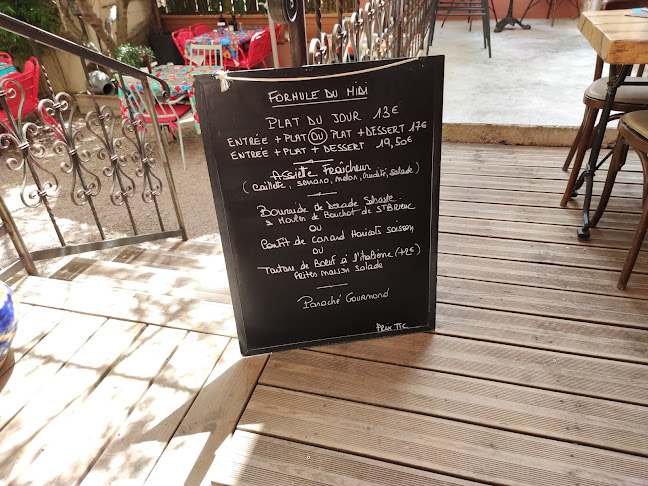 FORMULE DU MIDI
PLAT DU JOUR 13€
ENTRÉE + PLAT (OU) PLAT + DESSERT 17€
ENTRÉE + PLAT + DESSERT 19,50€
Assiette Fraîcheur
(caillette, serrano, melon, crudité, salade)
de dorade
& Moules de Bouchot de St Brieuc
OU
Confit de canard Haricots
OU
Tartare de Boeuf à l'italienne (+2€)
frites maison salade
Panaché Gourmand
Prix TTC